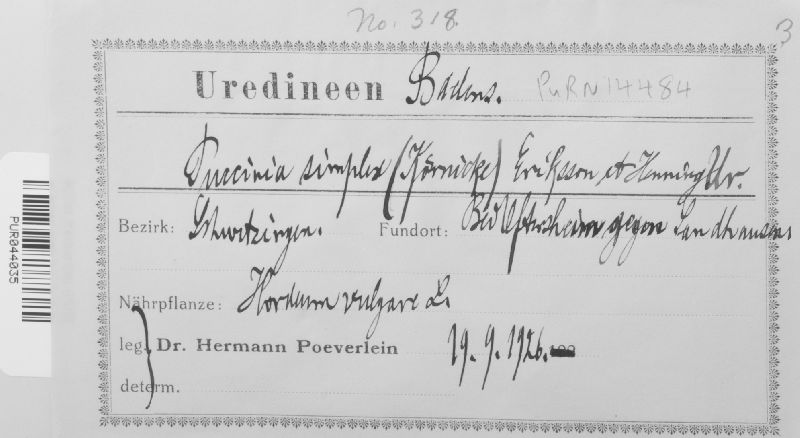 No. 318
3
Uredineen Badens. PURN14484
Puccinia simplex (Körnicke) Eriksson et Henning Ur.
Bezirk: Schwetzingen. Fundort: gegen Sandhausen
Nährpflanze: Hordeum vulgare L.
leg. Dr. Hermann Poeverlein 19. 9. 1926.
determ.
PUR044035